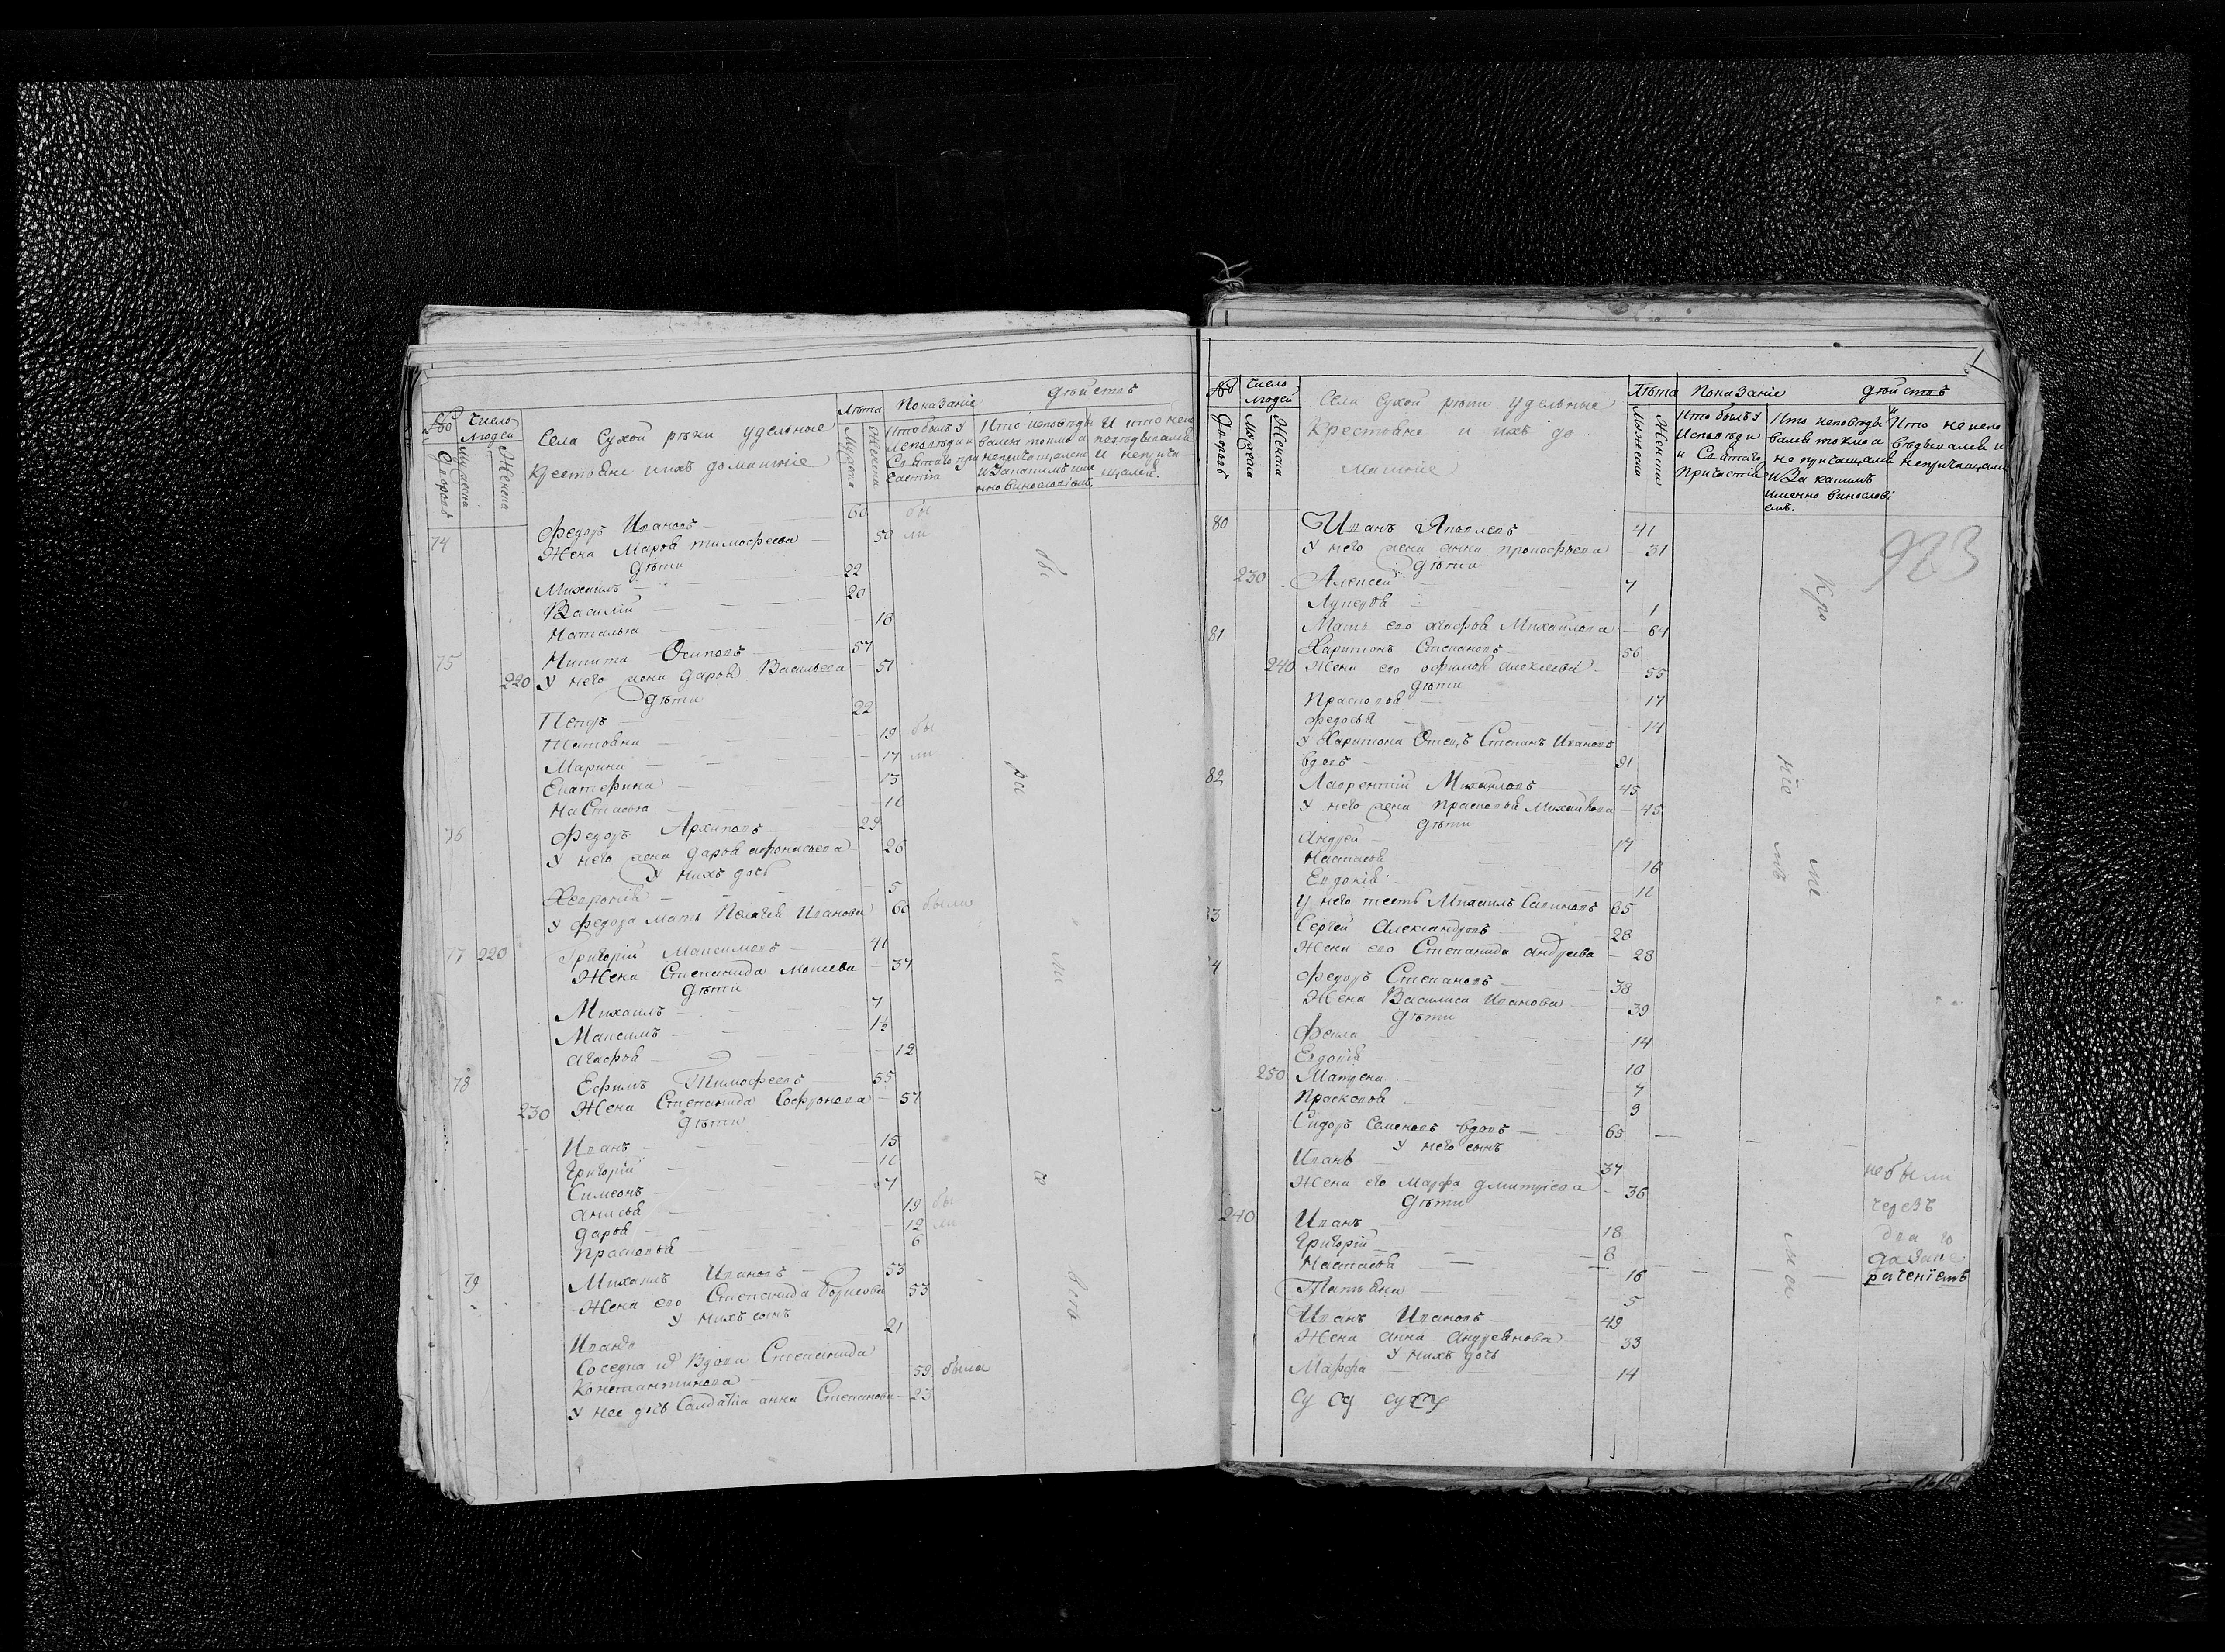 №
Число
людей
Дворовъ
Мужеска
Женска
Села Сухой рѣки удельные
крестьяне и ихъ домашніе
Лѣта
Мужеска
Женска
Показаніе
дѣйствъ
Кто былъ у
исповѣди и
Святаго при
частія
Кто исповѣды
вался токмо а
непричащался
именно винословіемъ
И кто не ис
повѣдывался
и неприча
щался.
74 Федоръ Ивановъ — 60 бы
Жена Марѳа Тимофеева — 50 ли
дѣти
Михаилъ — 22
Василій — 20
Наталья — 16
75 Никита Осиповъ — 57
220 У него жена Дарья Васильева — 51
дѣти
Петръ — 22
Татьяна — 19 бы
Марина — 17 ли
Екатерина — 13
Настасья — 11
76 Федоръ Архиповъ — 29
У него жена Дарья Афонасьева — 26
У нихъ дочь
Февронія — 5
У Федора мать Пелагея Иванова 60 были
77 220 Григорій Максимовъ — 41
Жена Степанида Моисеева — 37
дѣти
Михаилъ — 7
Максимъ — 1½
Агафья — 12
78 Ефимъ Тимофеевъ — 55
230 Жена Степанида Софронова — 57
дѣти
Иванъ — 15
Григорій — 11
Симеонъ — 7
Анисья — 19 бы
Дарья — 12 ли
Прасковья — 6
79 Михаилъ Ивановъ — 53
Жена его Степанида Борисова 53
У нихъ сынъ
Иванъ — 21
Соседка их вдова Степанида
Константинова — 59 была
У нее дочь солдатка Анна Степанова — 23
№
Число
людей
Дворовъ
Мужеска
Женска
Села Сухой рѣки удельные
крестьяне и ихъ до
машніе
Лѣта
Мужеска
Женска
Показаніе
дѣйствъ
Кто былъ у
Исповѣди
и Святаго
Причастія
Кто исповѣды
вался токмо а
не причащался
и За какимъ
именно винослові
емъ.
Кто не испо
вѣдывался и
непричащался
923
80 Иванъ Яковлевъ 41
У него жена Анна Прокофьева 31
дѣти
230 Алексей 7
Лукерья 1
Мать его Агафья Михайлова — 64
81 Харитонъ Степановъ — 56
240 Жена его Офимья Алексеева — 55
дѣти
Прасковья — 17
Федосья — 14
У Харитона Отецъ Степанъ Ивановъ
вдовъ — 91
82 Лаврентій Михайловъ 45
У него жена Прасковья Михайлова — 45
дѣти
Андрей 17
Настасья 16
Евдокія — 11
У него тесть Михаилъ Савиновъ 65
83 Сергей Александровъ — 28
Жена его Степанида Андреева — 28
84 Федоръ Степановъ — 38
Жена Василиса Иванова — 39
дѣти
Фекла — 14
Евдокія 10
250 Матрена 7
Прасковья 3
Сидоръ Семеновъ вдовъ — 65
У него сынъ
Иванъ 37
Жена его Марфа Дмитріева — 36
дѣти
240 Иванъ 18
Григорій 8
Настасья 16
Татьяна 5
Иванъ Ивановъ — 49
Жена Анна Андреянова 33
У нихъ дочь
Марфа 14
небыли
черезъ
два го
да за не
раченіемъ